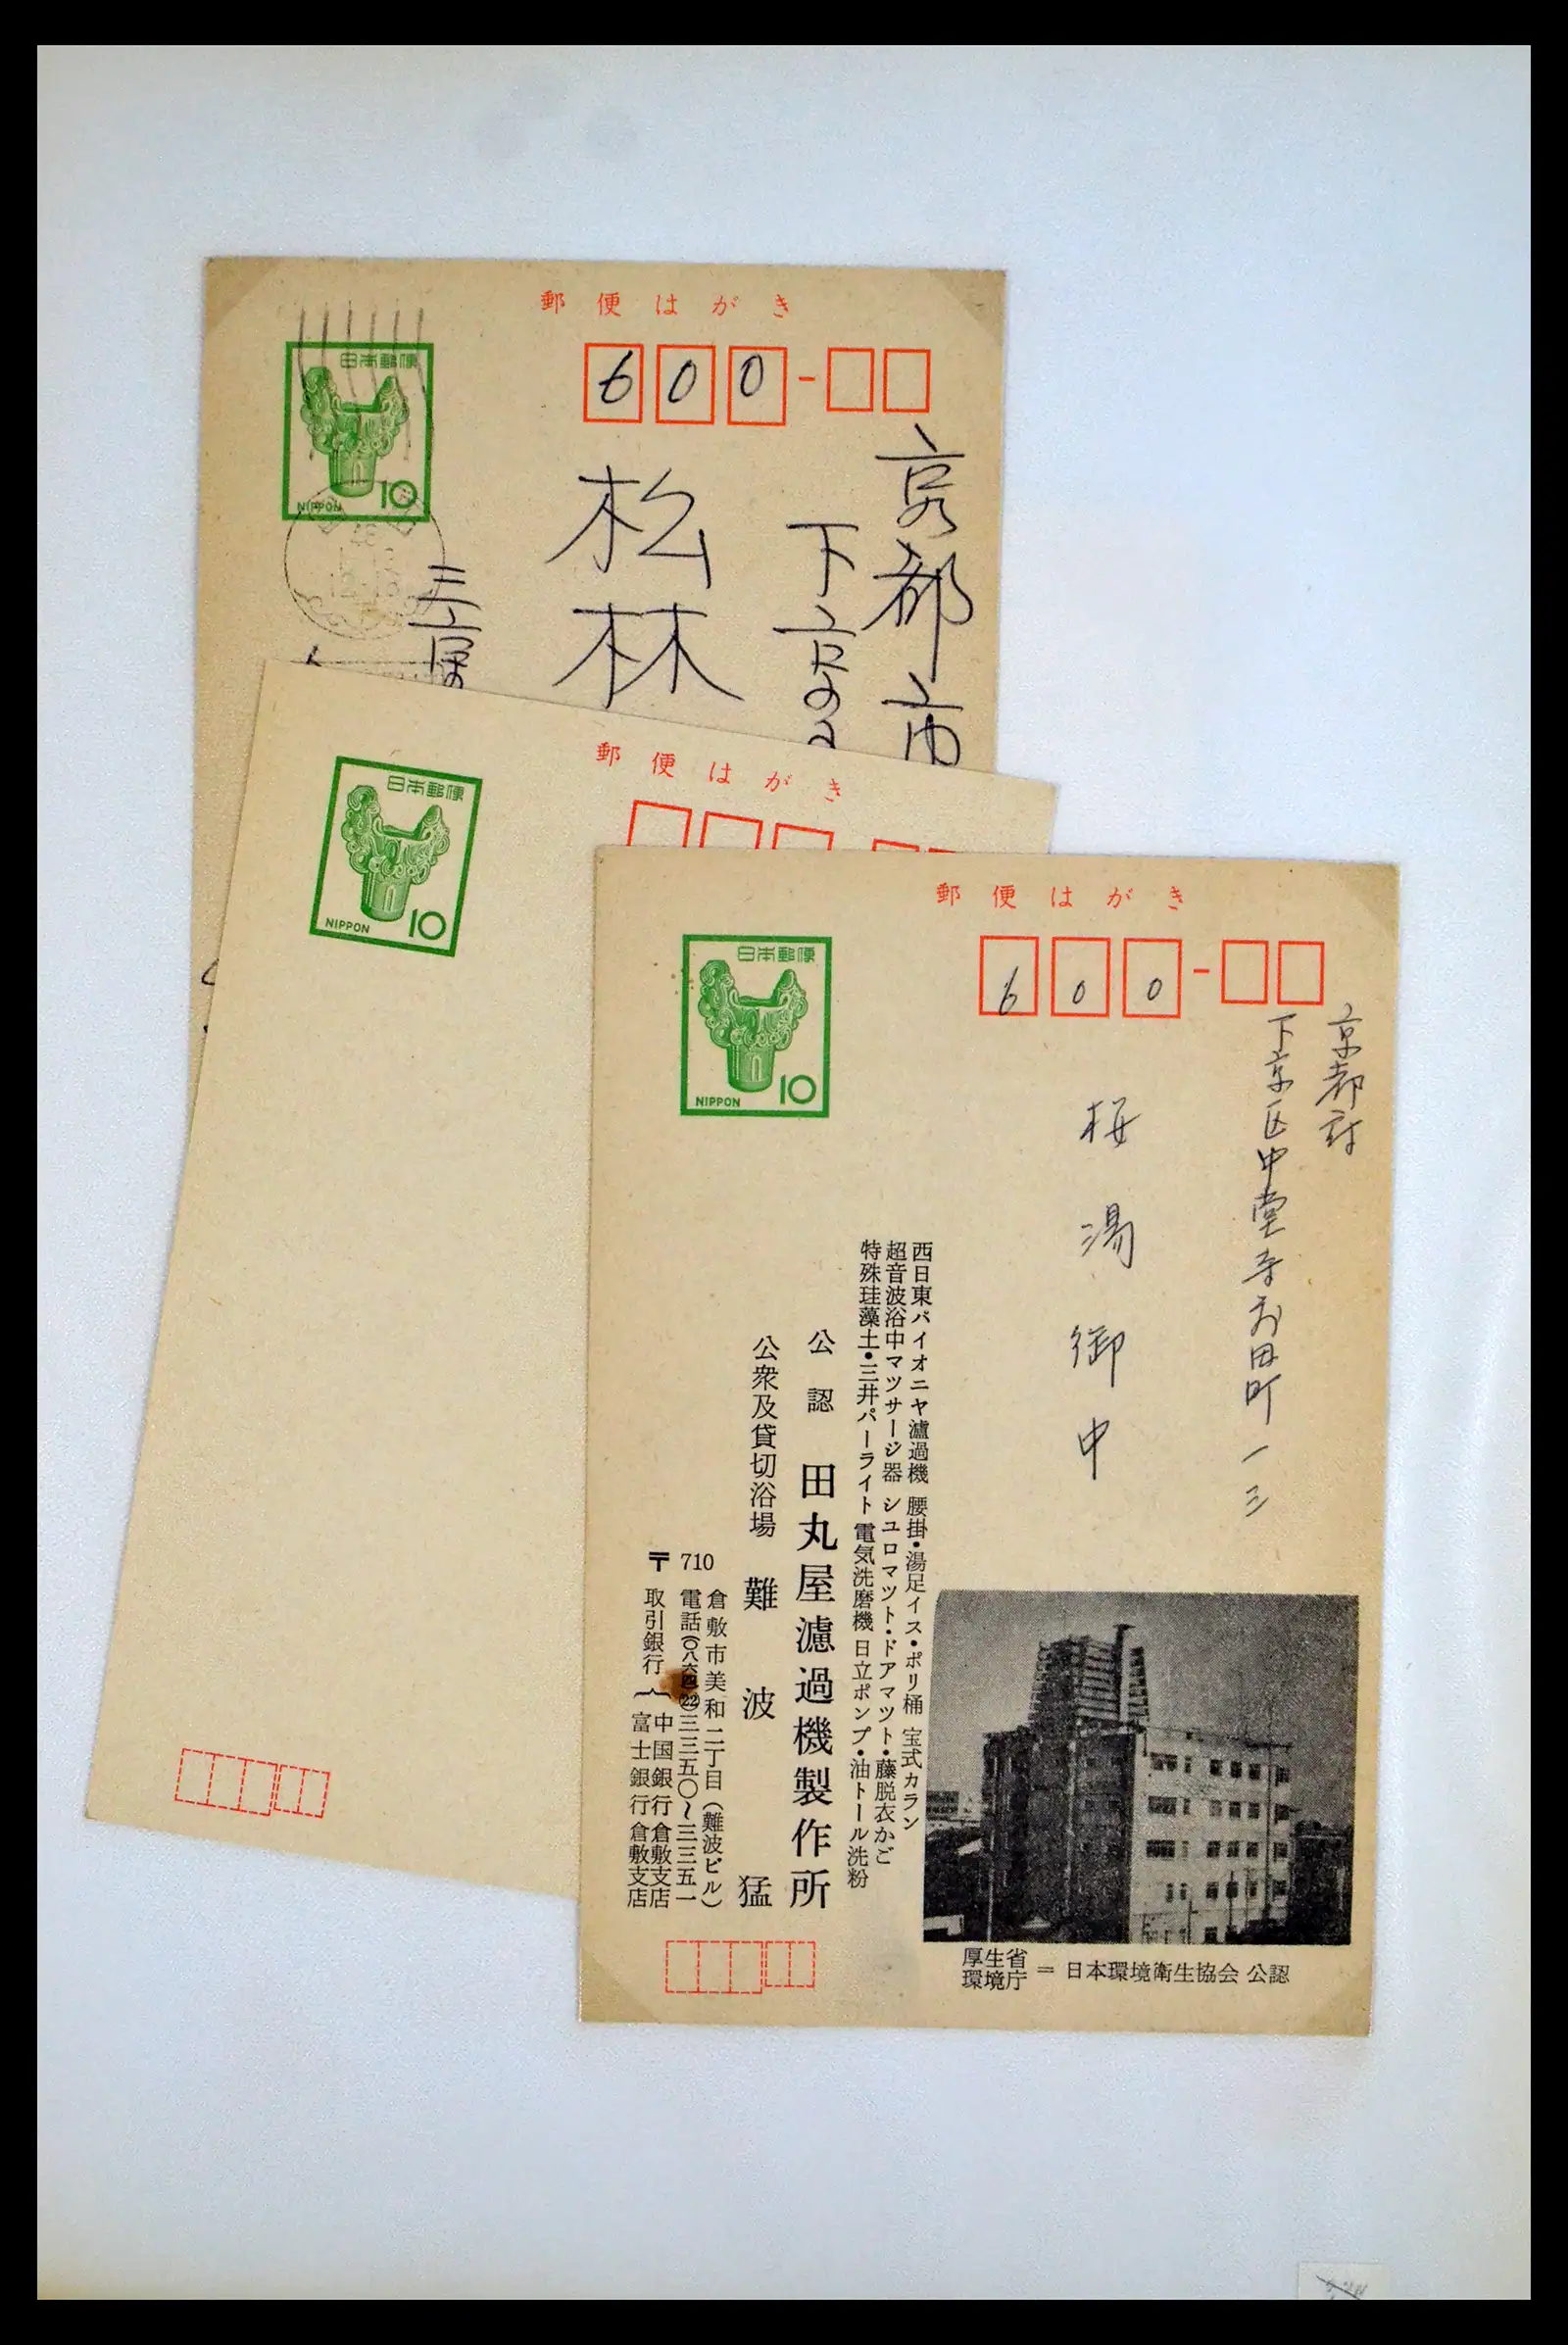 郵便はがき
日本郵便
NIPPON 10
600
京都市
下京
松林
郵便はがき
日本郵便
NIPPON 10
郵便はがき
日本郵便
NIPPON 10
600
京都市
下京区中堂寺前田町一三
桜湯御中
西日東パイオニヤ濾過機 腰掛・湯足イス・ポリ桶 宝式カラン
超音波浴中マツサージ器 シユロマツト・ドアマツト・藤脱衣かご
特殊珪藻土・三井パーライト 電気洗磨機 日立ポンプ・油トール洗粉
公認 田丸屋濾過機製作所
公衆及貸切浴場 難波猛
〒710
倉敷市美和二丁目(難波ビル)
電話(〇八六四)(22)三三五〇〜三三五一
取引銀行{中国銀行倉敷支店
富士銀行倉敷支店
厚生省
環境庁 = 日本環境衛生協会 公認